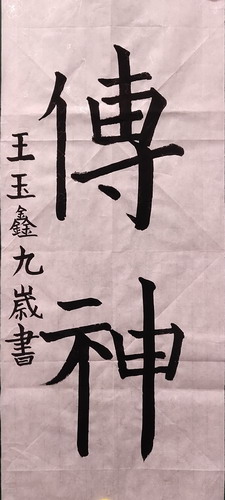 傳神
王玉鑫九歲書